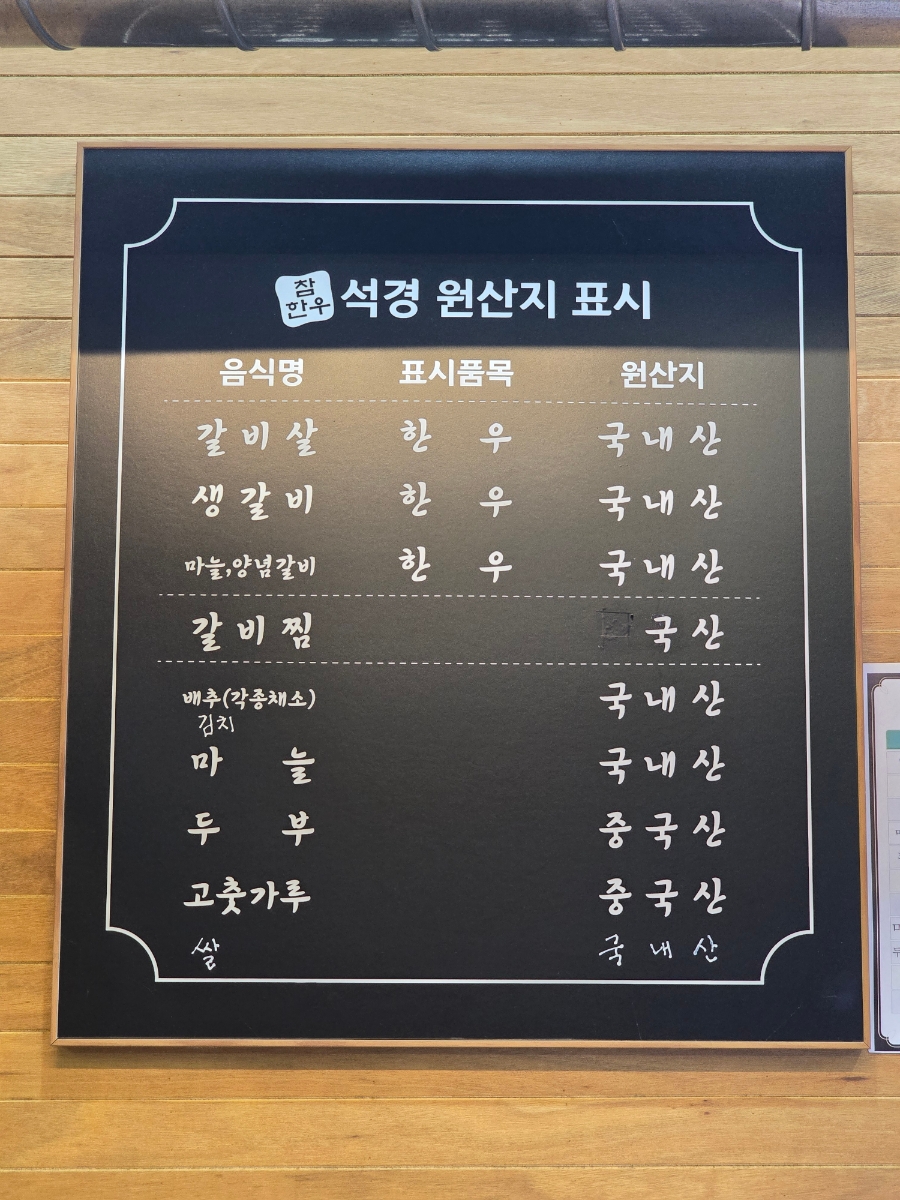 참한우 석경 원산지 표시
음식명 표시품목 원산지
갈비살 한우 국내산
생갈비 한우 국내산
마늘,양념갈비 한우 국내산
갈비찜 국산
배추(각종채소) 국내산
김치
마늘 국내산
두부 중국산
고춧가루 중국산
쌀 국내산